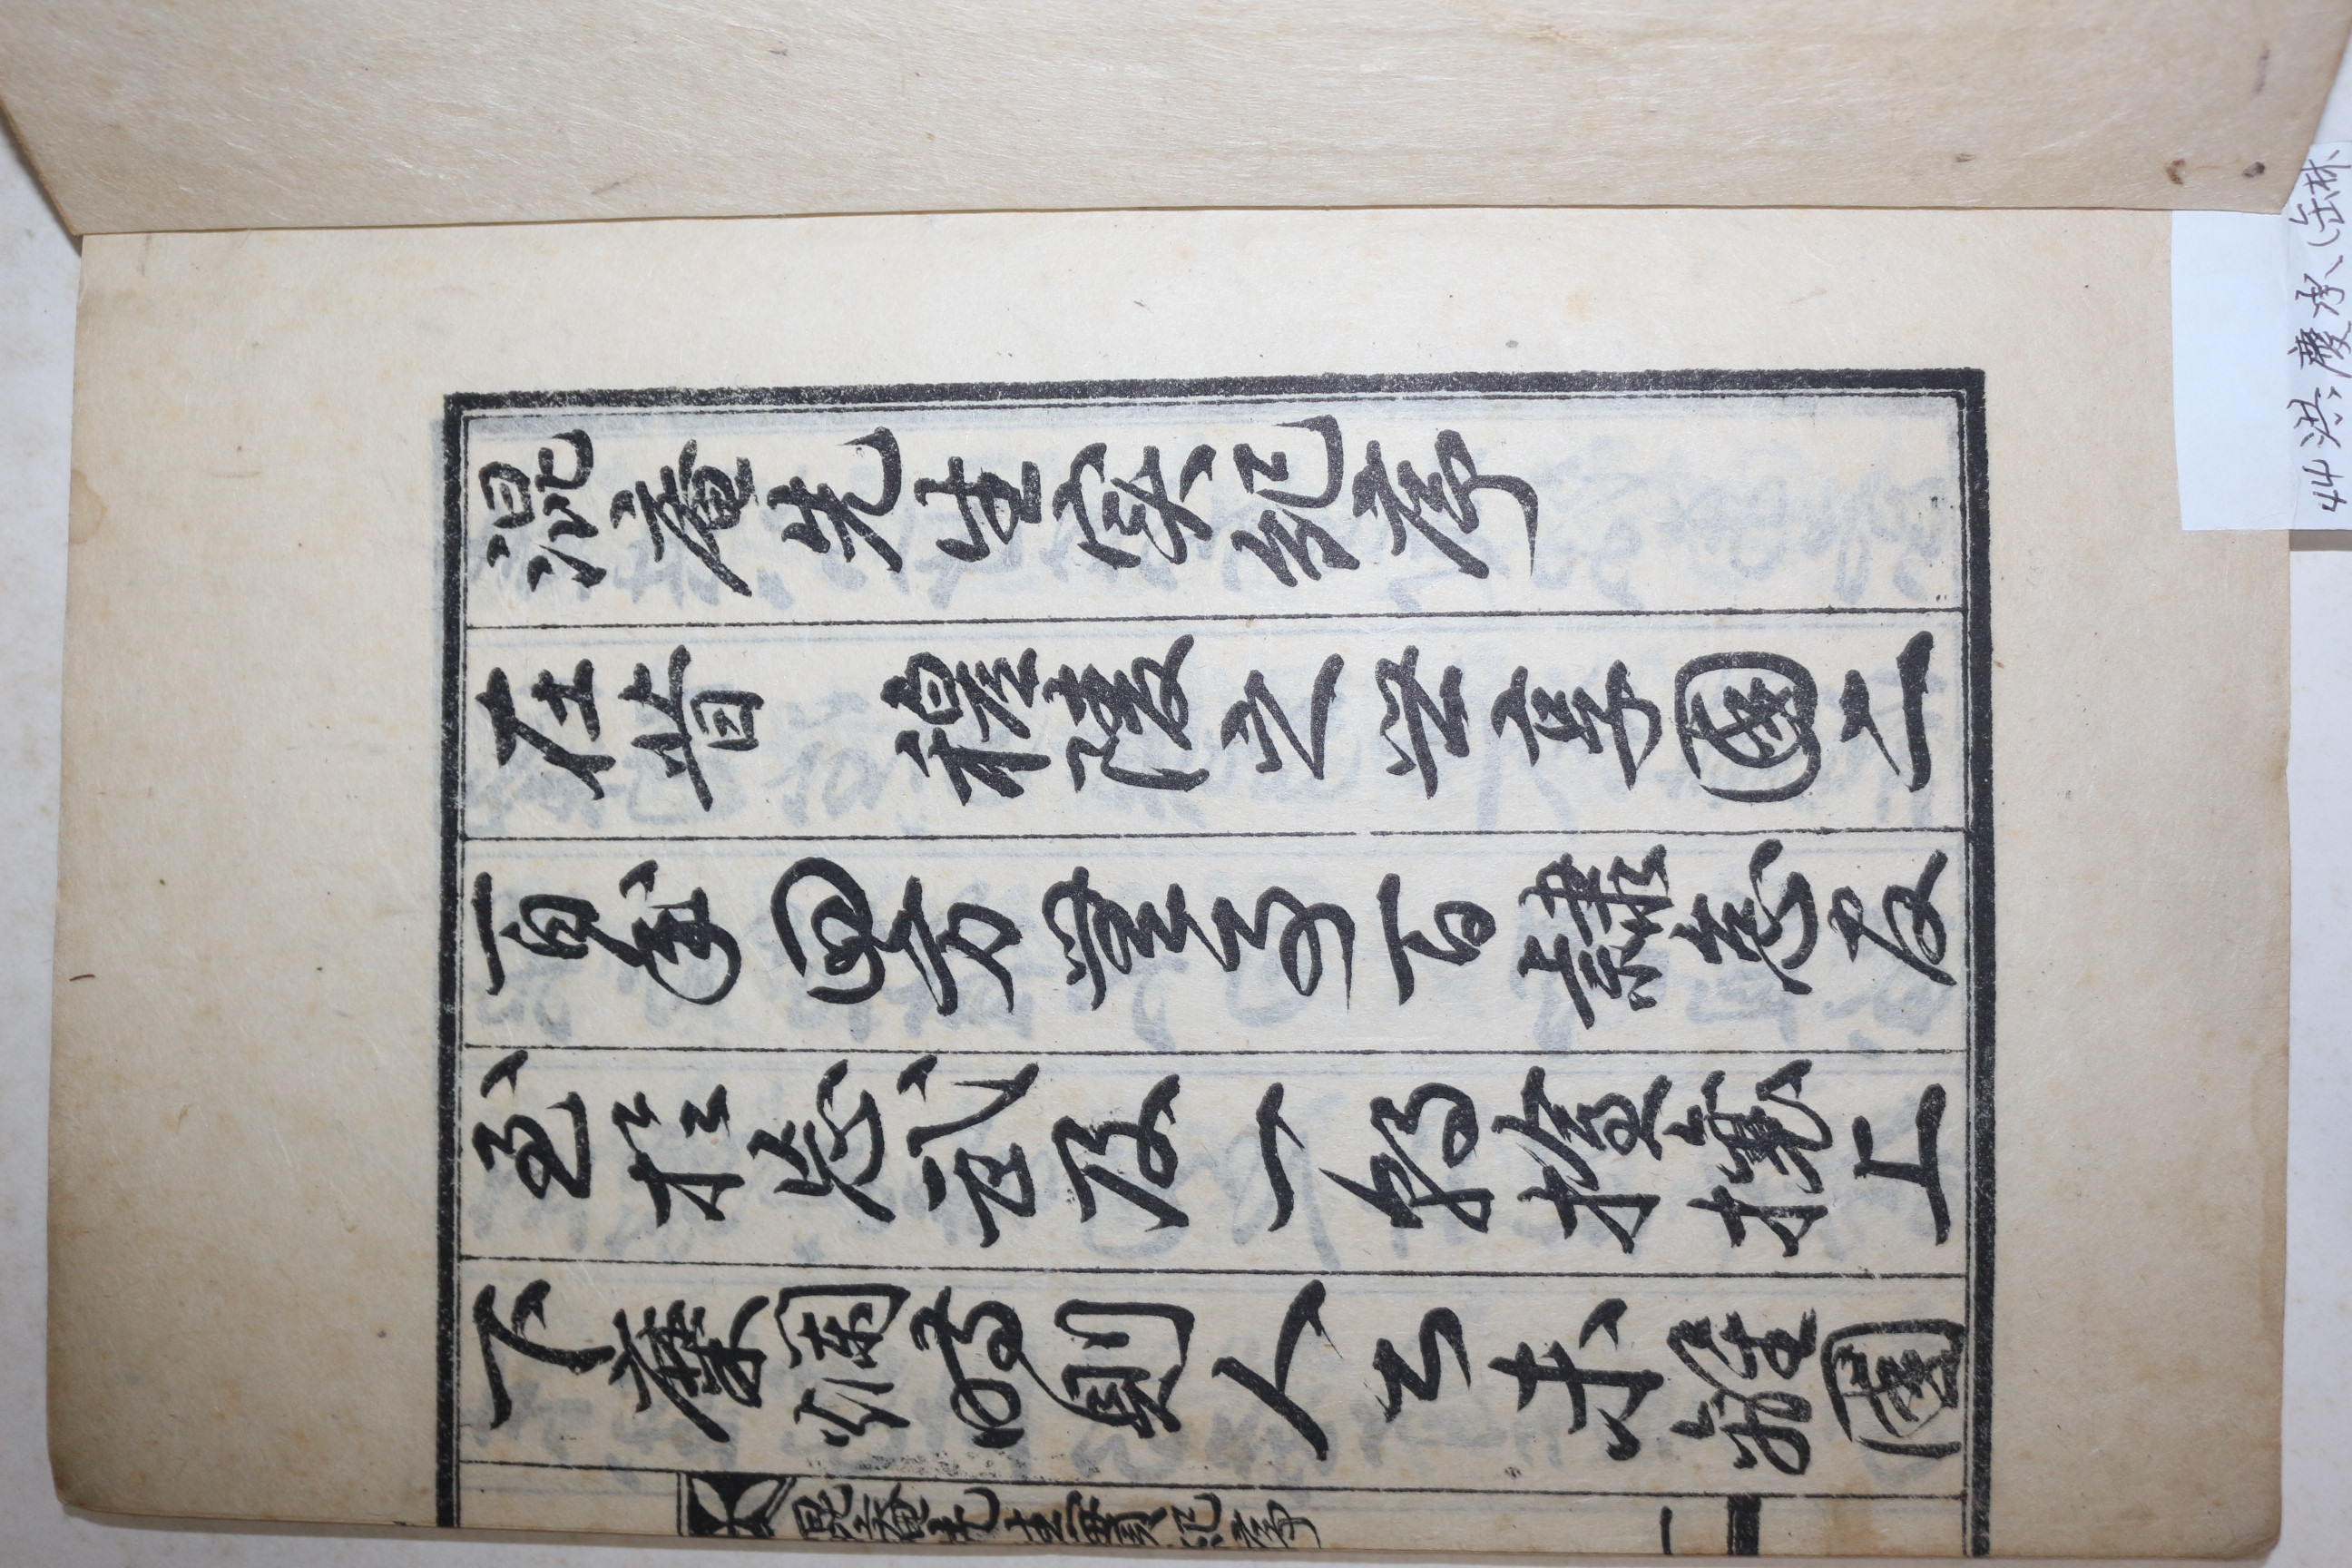 混庵先生实紀序
在昔 穆陵之世享國二
百年四方無事百隸怠官
至於忘武及一朝搶攘上
下糜爛時則人士未離國
混庵先生實紀序 一
44 洪慶承